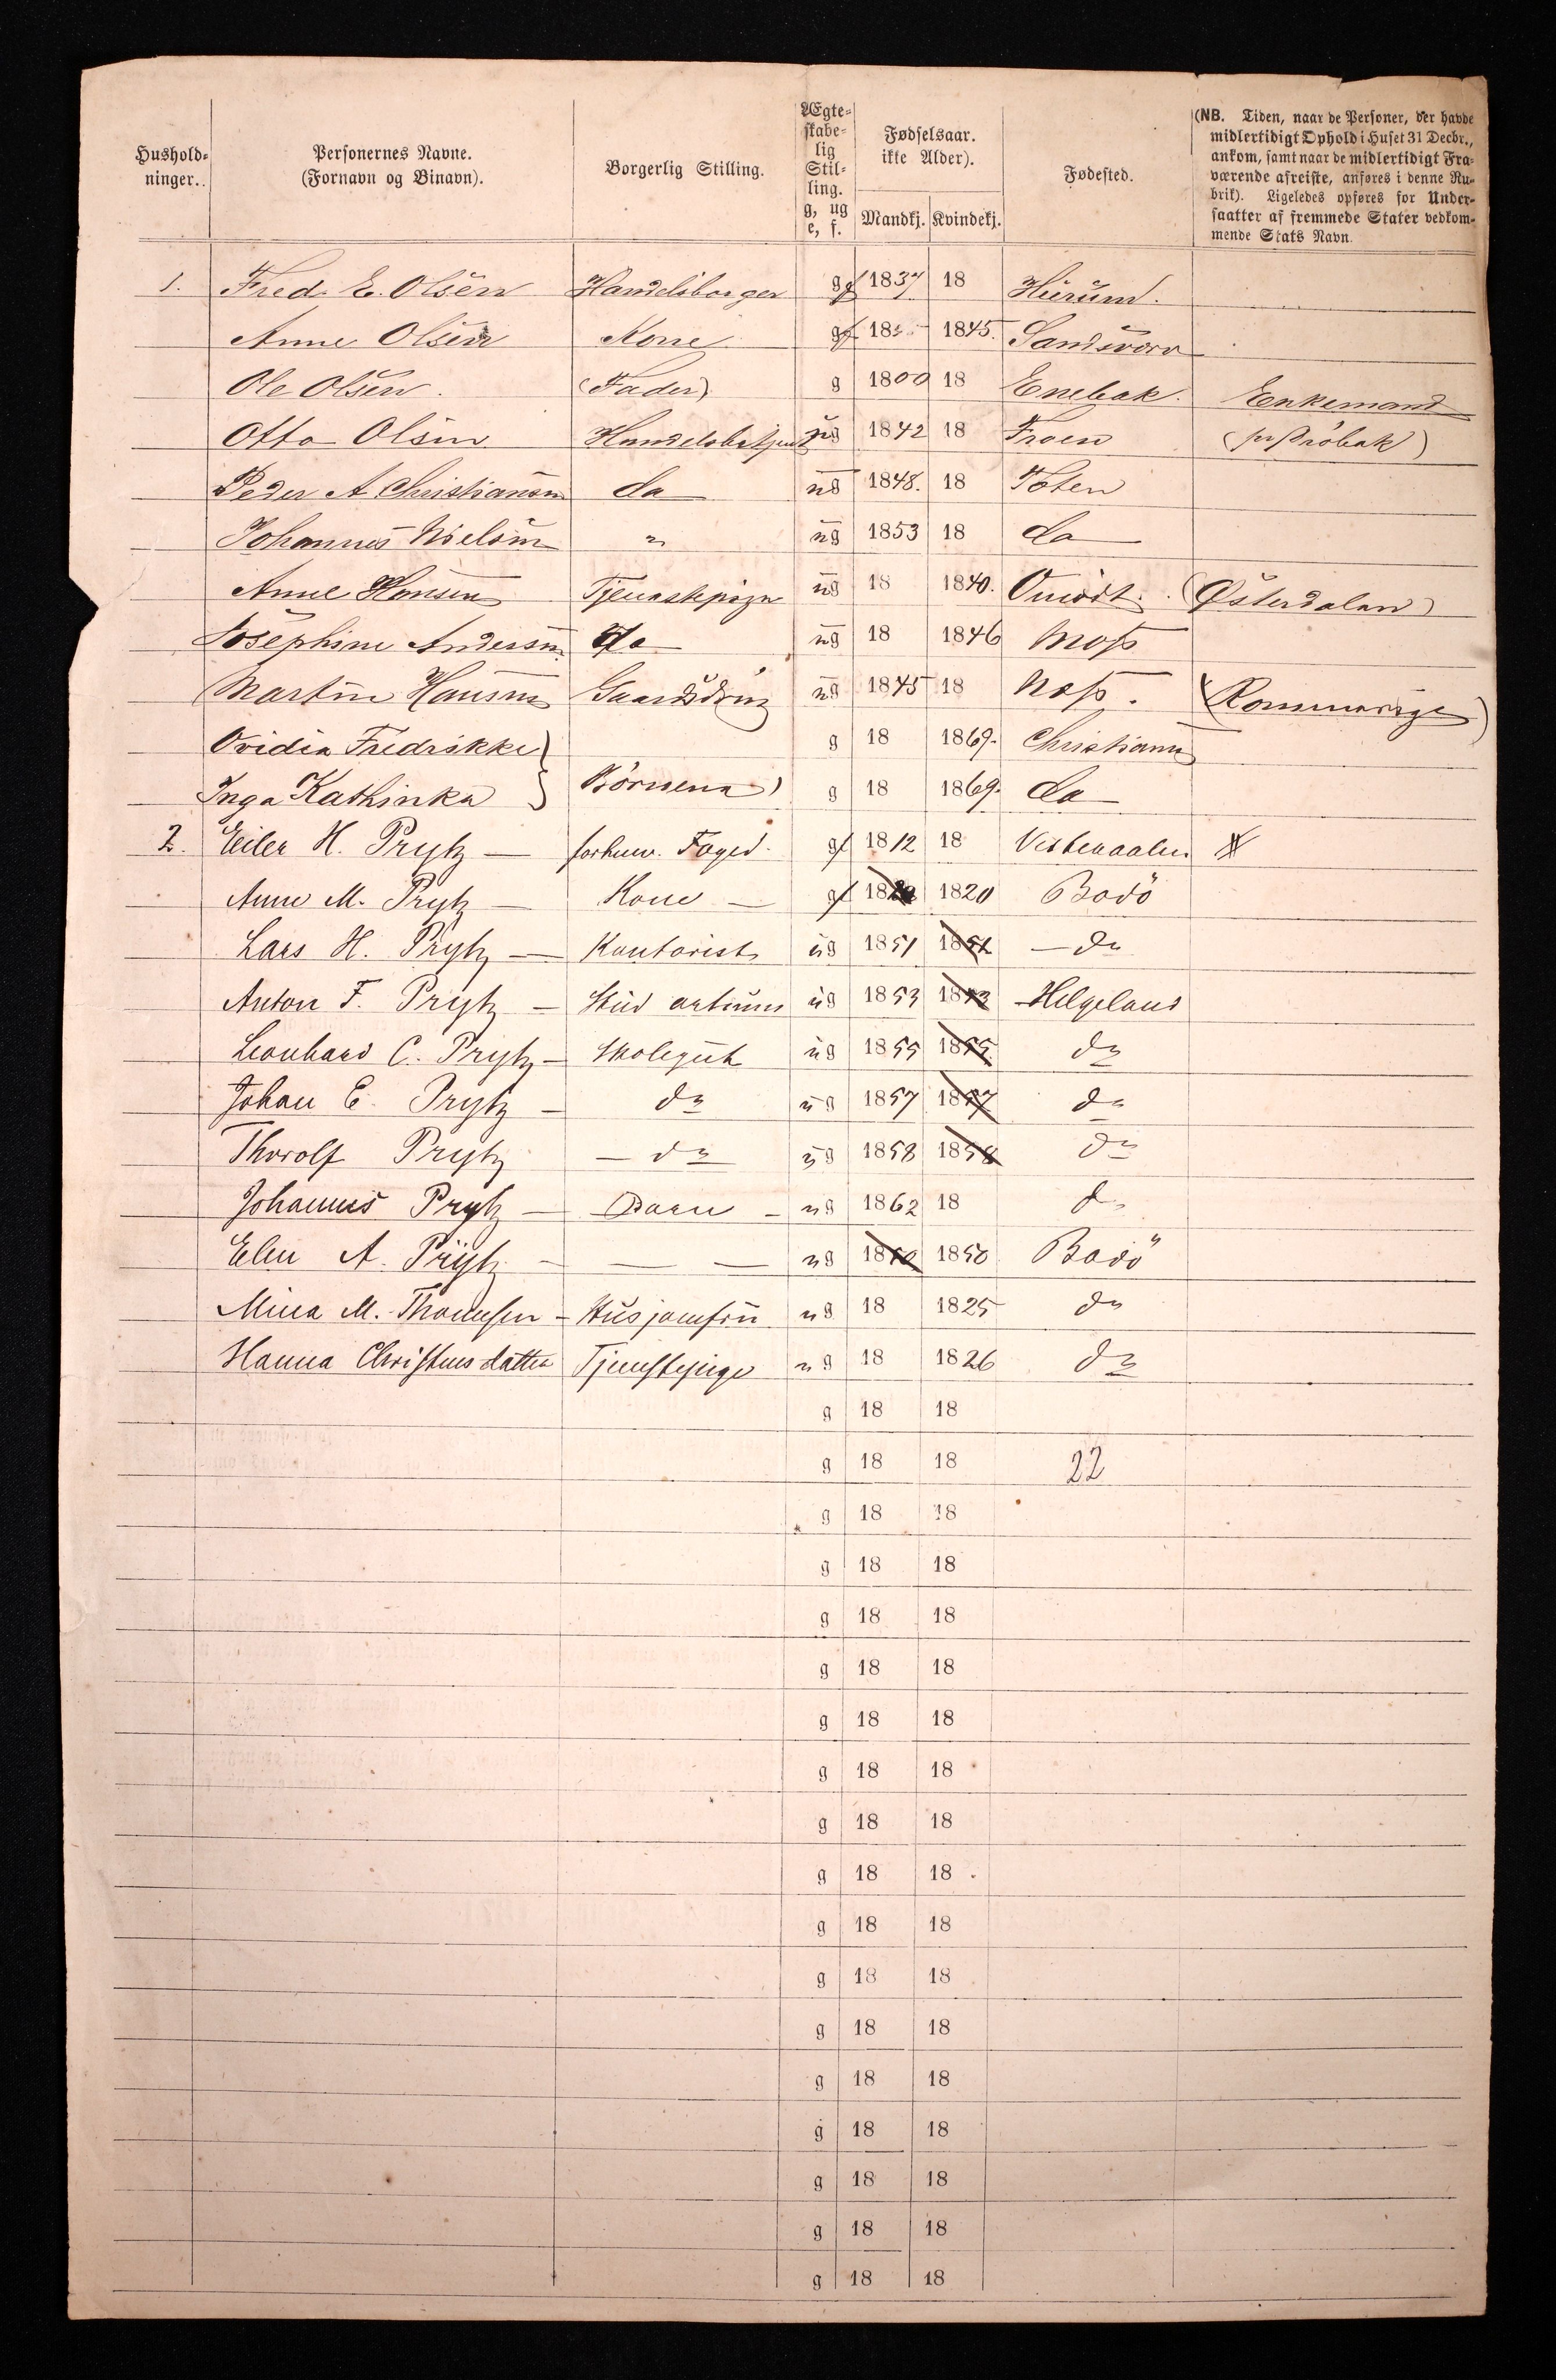 Hushold-
ninger.
Personernes Navne.
(Fornavn og Binavn).
Borgerlig Stilling.
Ægte-
skabe-
lig
Stil-
ling.
g, ug
e, f.
Fødselsaar.
ikke Alder).
Mandkj. Kvindekj.
Fødested.
(NB. Tiden, naar de Personer, der havde
midlertidigt Ophold i Huset 31 Decbr.,
ankom, samt naar de midlertidigt Fra-
værende afreiste, anføres i denne Ru-
brik). Ligeledes opføres for Under-
saatter af fremmede Stater vedkom-
mende Stats Navn.
1. Fred. E. Olsen Handelsborger g 1837 18 Hurum.
Anne Olsen Kone g 18 1845. Sandsvær
Ole Olsen. (Fader) g 1800 18 Enebak. Enkemand
Otto Olsen Handelsbetjent ug 1842 18 Froen (pr Dröbak)
Peder A Christiansen do ug 1848. 18 Toten
Johannes Nielsen " ug 1853 18 do
Anne Hansen Tjenestepige ug 18 1840. (Østerdalen)
Josephine Andersen do ug 18 1846 Moss
Martin Hansen Gaardsdreng ug 1845 18 (Rommerige)
Ovidia Fredrikke } g 18 1869. Christiania
Inga Kathinka } Börnene) g 18 1869. do
2. Eiler H. Prytz — forhenv. Foged. g 1812 18 Vesteraalen
Anne M. Prytz — Kone — g 18 1820 Bodö
Lars H. Prytz — Kontorist ug 1851 1851 — do
Anton F. Prytz — Stud artium ug 1853 1853 Helgeland
Leonhard C. Prytz — Skolegut ug 1855 1855 do
Johan E. Prytz — do ug 1857 1857 do
Thorolf Prytz — do ug 1858 1858 do
Johannes Prytz — Barn — ug 1862 18 do
Elen A. Prytz — — — ug 1850 1850 Bodö
Mina M. Thomesen — Husjomfru ug 18 1825 do
Hanna Christensdatter Tjenstepige ug 18 1826 do
g 18 18
g 18 18 22
g 18 18
g 18 18
g 18 18
g 18 18
g 18 18
g 18 18
g 18 18
g 18 18
g 18 18
g 18 18
g 18 18
g 18 18
g 18 18
g 18 18
g 18 18
g 18 18